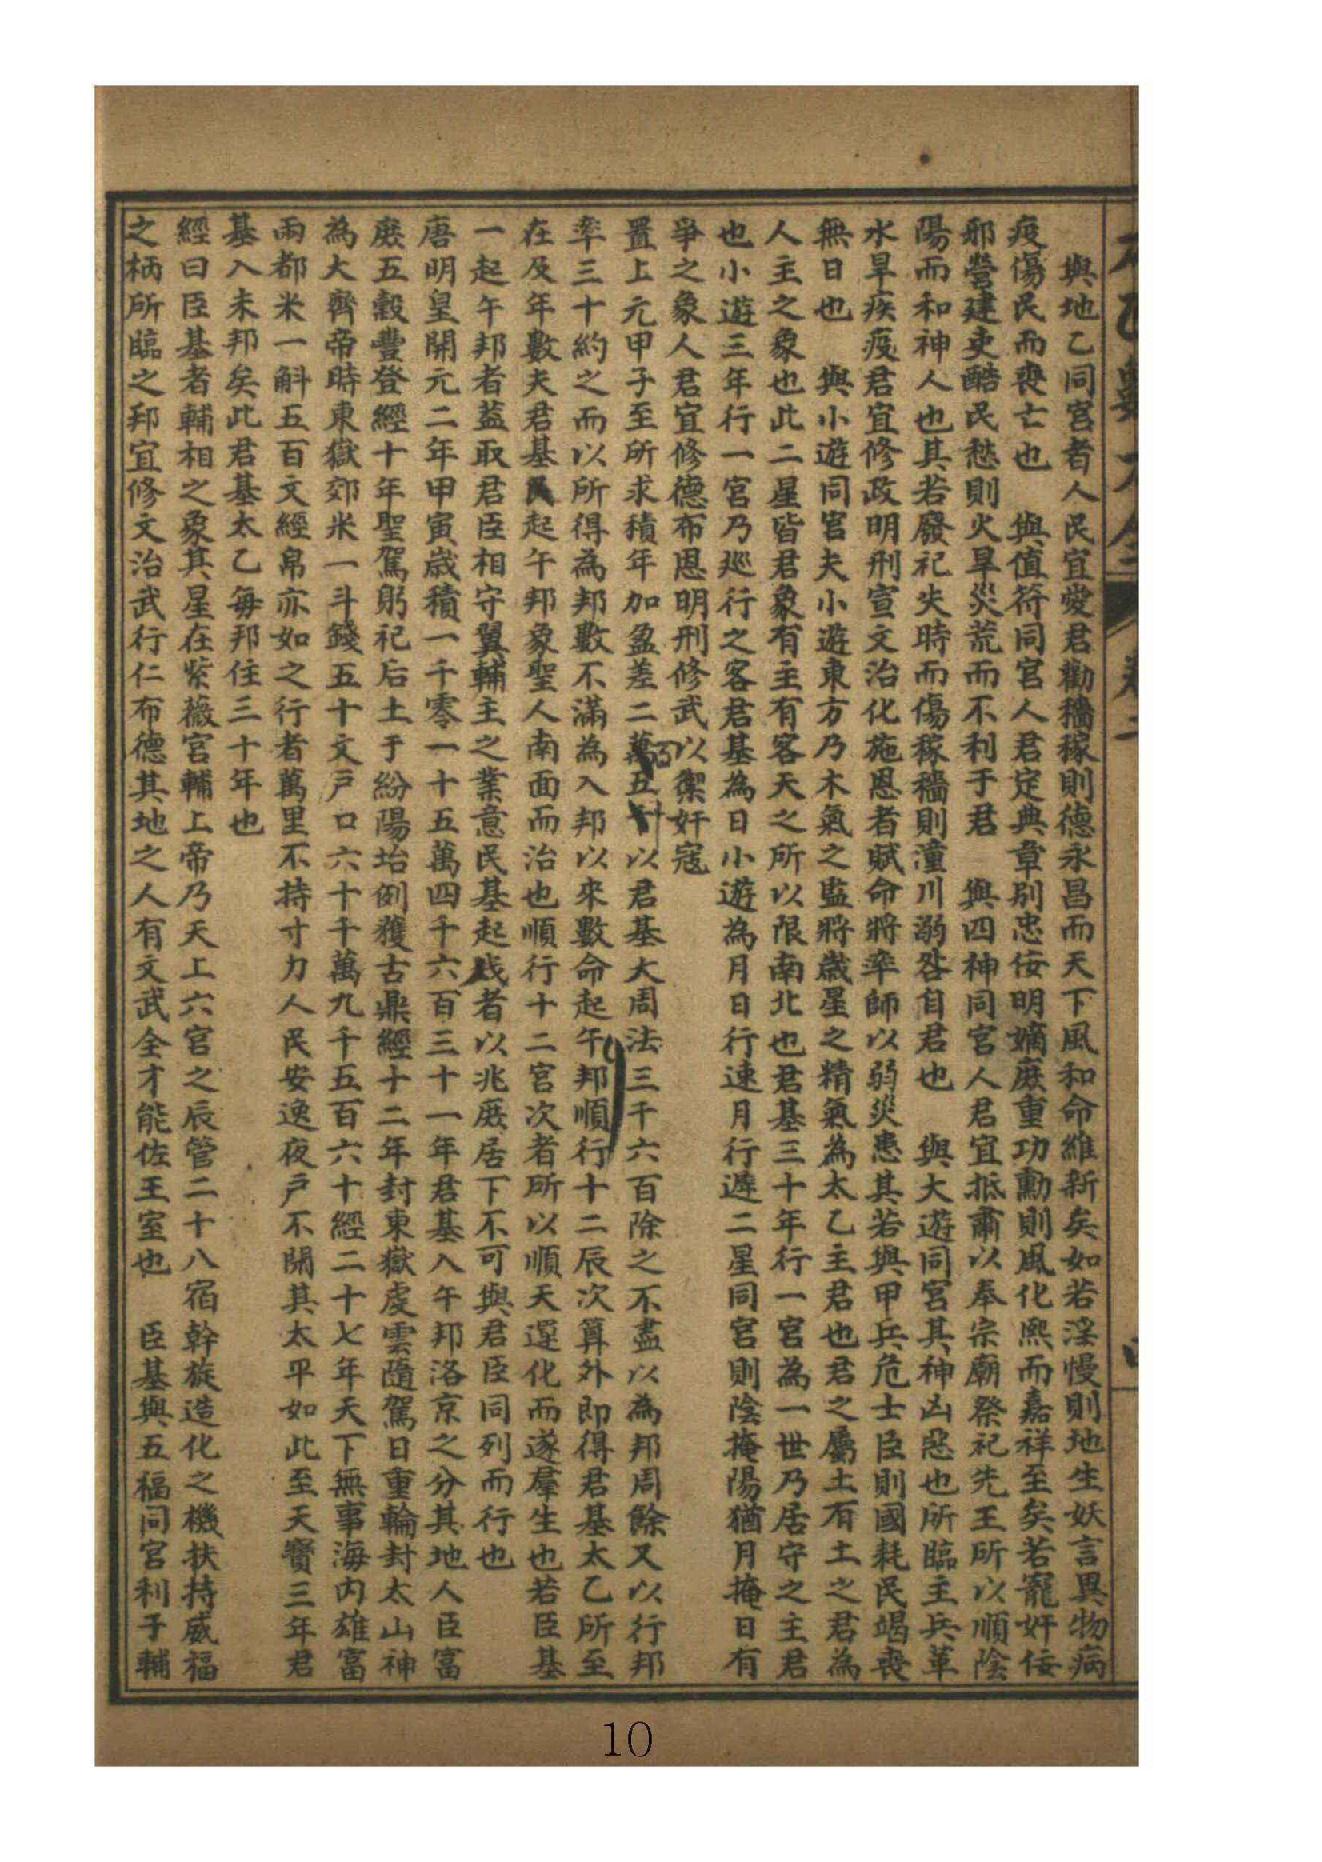 與地乙同宮者人民宜愛君勸穡稼則德永昌而天下風和命維新矣如若淫慢則地生妖言異物病
疫傷民而喪亡也　與值符同宮人君定典章別忠佞明嫡庶重功勳則風化熙而嘉祥至矣若寵奸佞
邪營建吏酷民愁則火旱災荒而不利于君　與四神同宮人君宜抵肅以奉宗廟祭祀先王所以順陰
陽而和神人也其若廢祀失時而傷稼穡則潼川溺咎自君也　與大遊同宮其神凶惡也所臨主兵革
水旱疾疫君宜修政明刑宣文治化施恩者賦命將率師以弱災患其若與甲兵危士臣則國耗民竭喪
無日也　與小遊同宮夫小遊東方乃木氣之監將歲星之精氣為太乙主君也君之屬土有土之君為
人主之象也此二星皆君象有主有客天之所以限南北也君基三十年行一宮為一世乃居守之主君
也小遊三年行一宮乃巡行之客君基為日小遊為月日行速月行遲二星同宮則陰掩陽猶月掩日有
爭之象人君宜修德布恩明刑修武以禦奸寇
置上元甲子至所求積年加盈差二百五十以君基大周法三千六百除之不盡以為邦周餘又以行邦
率三十約之而以所得為邦數不滿為入邦以來數命起午邦順行十二辰次算外即得君基太乙所至
在及年數夫君基起午邦象聖人南面而治也順行十二宮次者所以順天運化而遂羣生也若臣基
一起午邦者蓋取君臣相守翼輔主之業意民基起戌者以兆庶居下不可與君臣同列而行也
唐明皇開元二年甲寅歲積一千零一十五萬四千六百三十一年君基入午邦洛京之分其地人臣富
庶五穀豐登經十年聖駕躬祀后土于紛陽坮例獲古鼎經十二年封東嶽虔雲隨駕日重輪封太山神
為大齊帝時東嶽郊米一斗錢五十文戶口六十千萬九千五百六十經二十七年天下無事海內雄富
兩都米一斛五百文經帛亦如之行者萬里不持寸力人民安逸夜戶不關其太平如此至天寶三年君
基入未邦矣此君基太乙每邦住三十年也
經曰臣基者輔相之象其星在紫薇宮輔上帝乃天上六宮之辰管二十八宿幹旋造化之機扶持威福
之柄所臨之邦宜修文治武行仁布德其地之人有文武全才能佐王室也　臣基與五福同宮利于輔
10